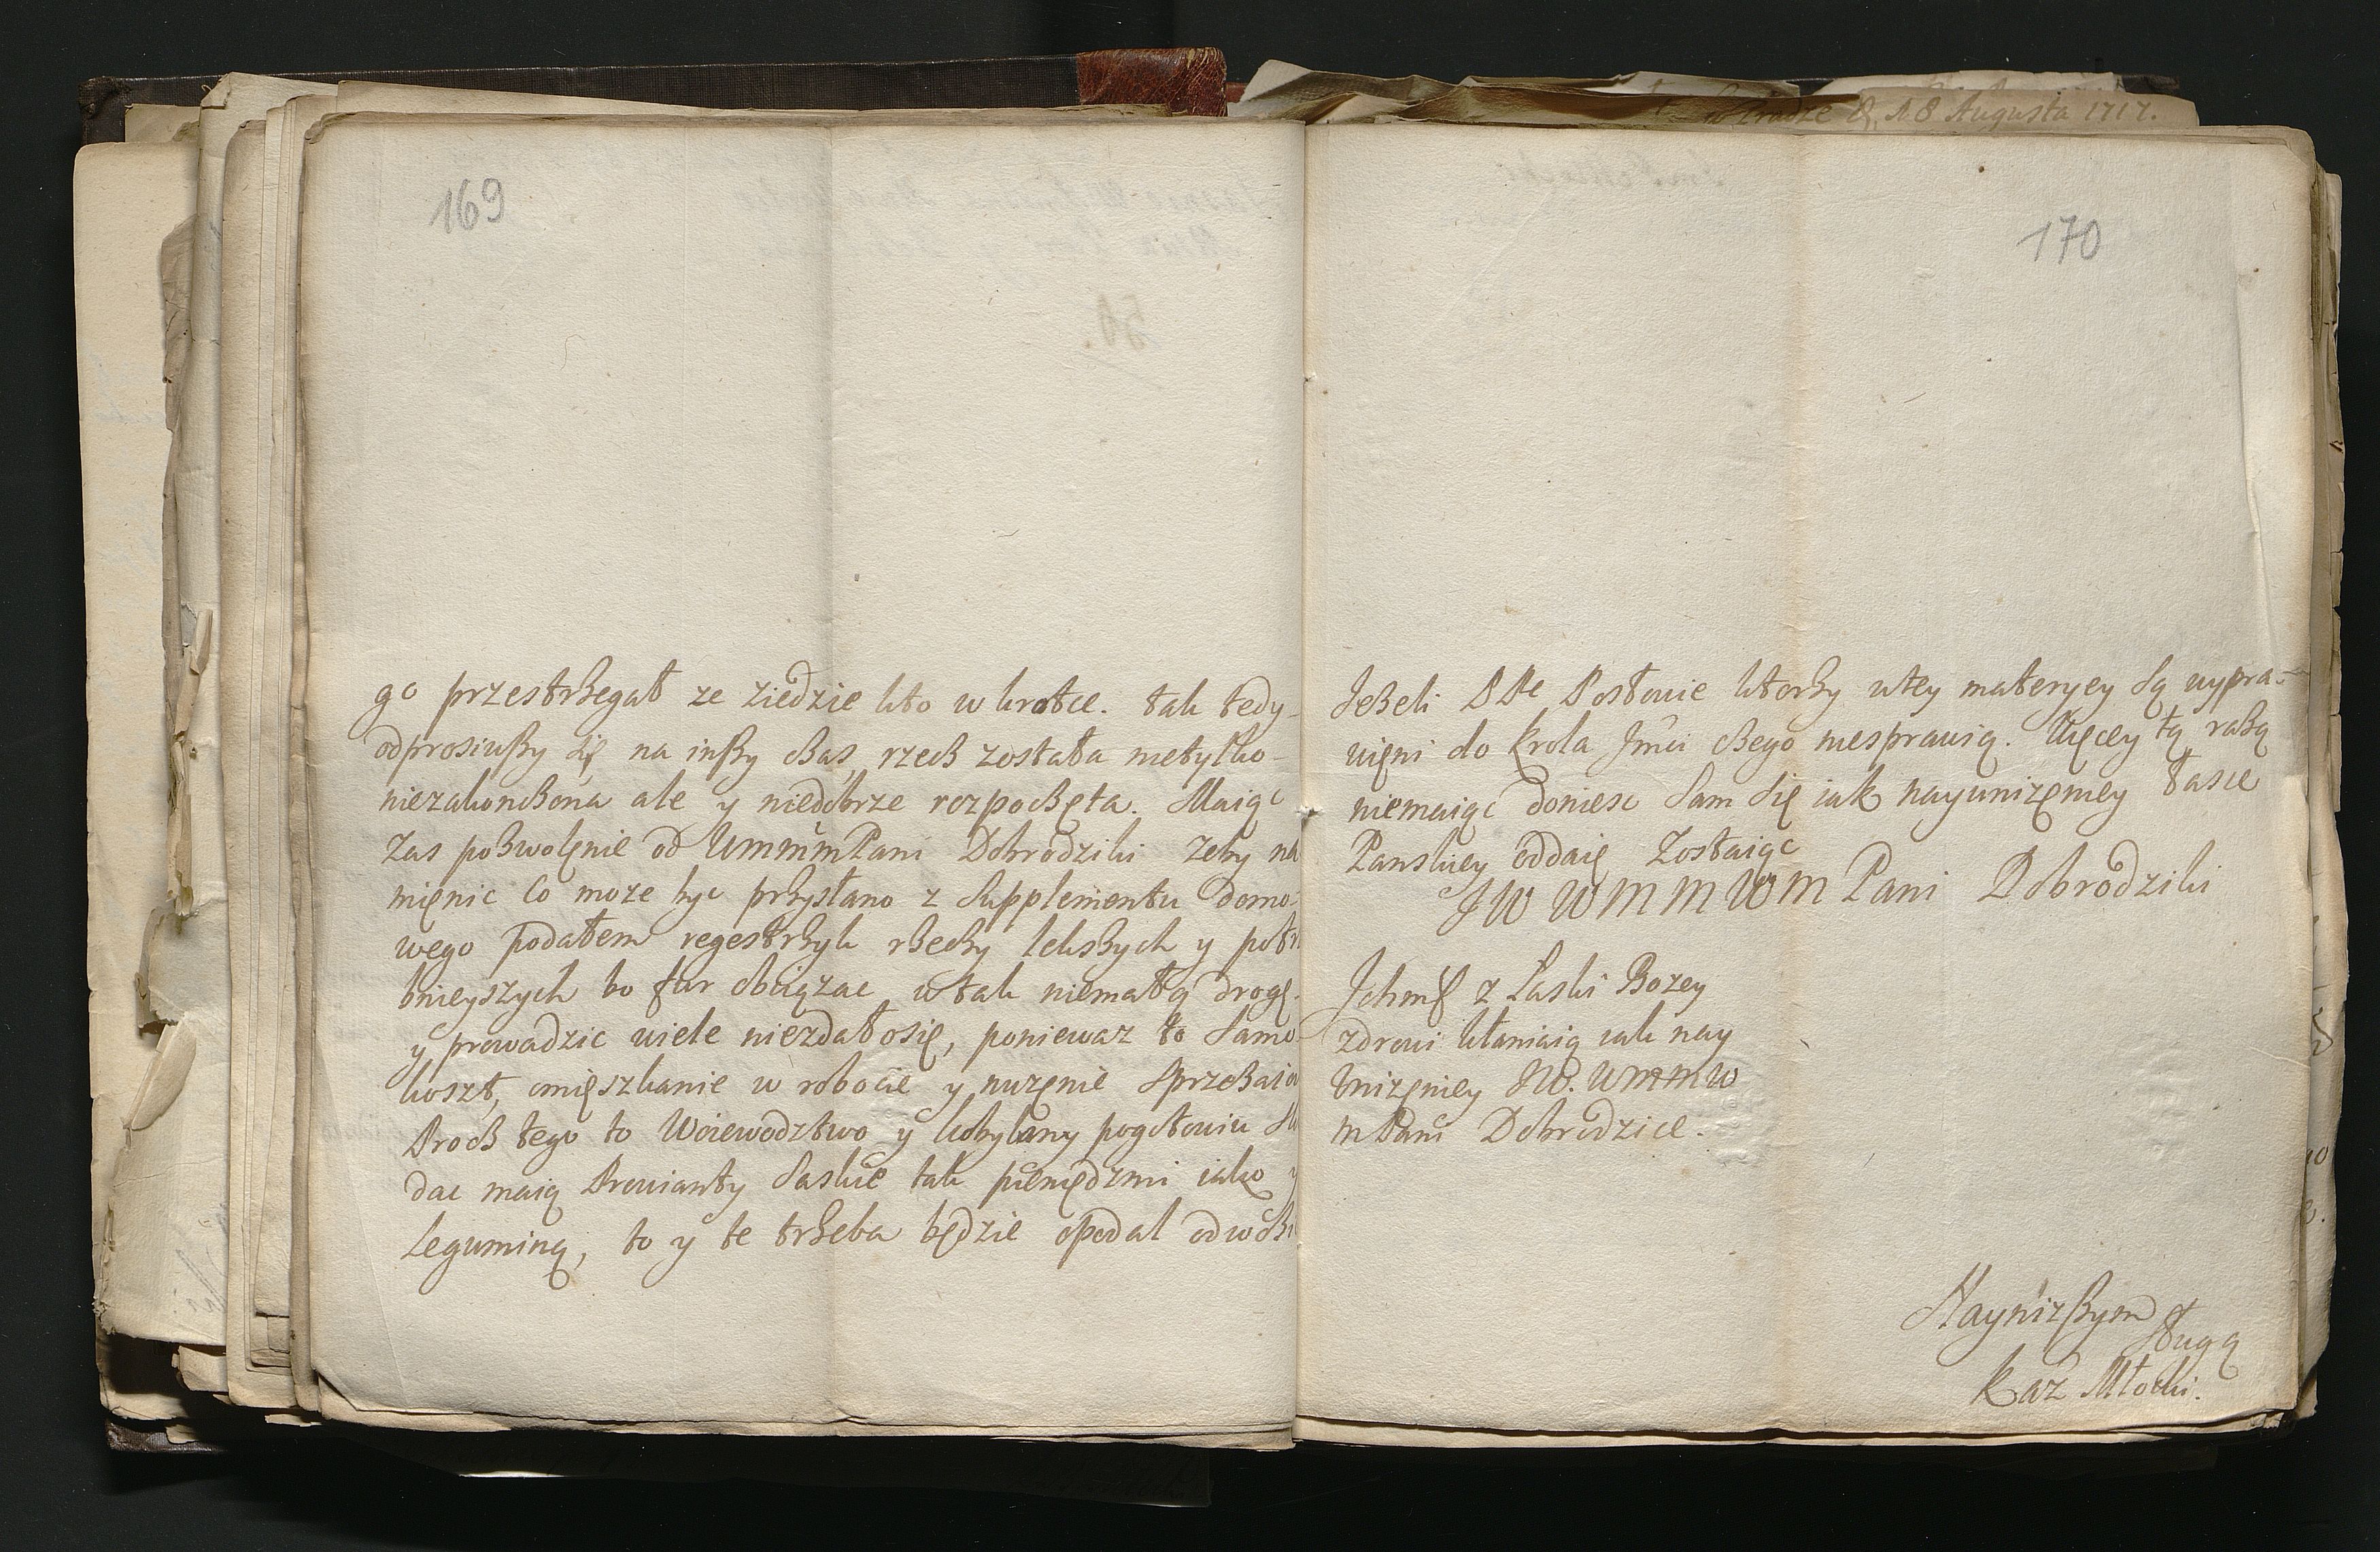 w Pradze d. 18 Augusta 1717.
169
go przestrzegał ze ziedzie kto w krotce. tak tedy
odprosiuszy się na inszy czas, rzecz została nietylko
niezakonczona ale y niedobrze rozpoczęta. Maiąc
Zas pozwolęnie od WmmmPani Dobrodziki zeby na
mięnic co moze byc przysłano z Supplementu domo-
wego podałem regestrzyk rzeczy lekszych y potrz
bnieyszych bo fur obciązac w tak niemałą drogę
y prowadzic wiele niezdało się, poniewaz to samo
koszt, omięszkanie w robocie y nuzęnie Sprzezaio
Procz tego to Woiewodztwo y kobylany pogotowiu
dac maią Prowianty Saskie tak pieniędzmi iako y
Leguminą, to y te trzeba będzie opodal odwozi
170
Jezeli PPe Posłowie ktorzy w tey materyey są wypra-
więni do krola Jmci czego niesprawią. Więcey tą razą
niemaiąc doniesc Sam się iak nayunizęniey łasce
Panskiey oddaię Zostaiąc
JW WMMWM Pani Dobrodziki
Ichmć z Łaski Bozey
zdrowi kłaniaią iak nay
Unizęniey JW. WMMW
mPani Dobrodzice.
Nayniższym
sługą
Kaz Młocki.